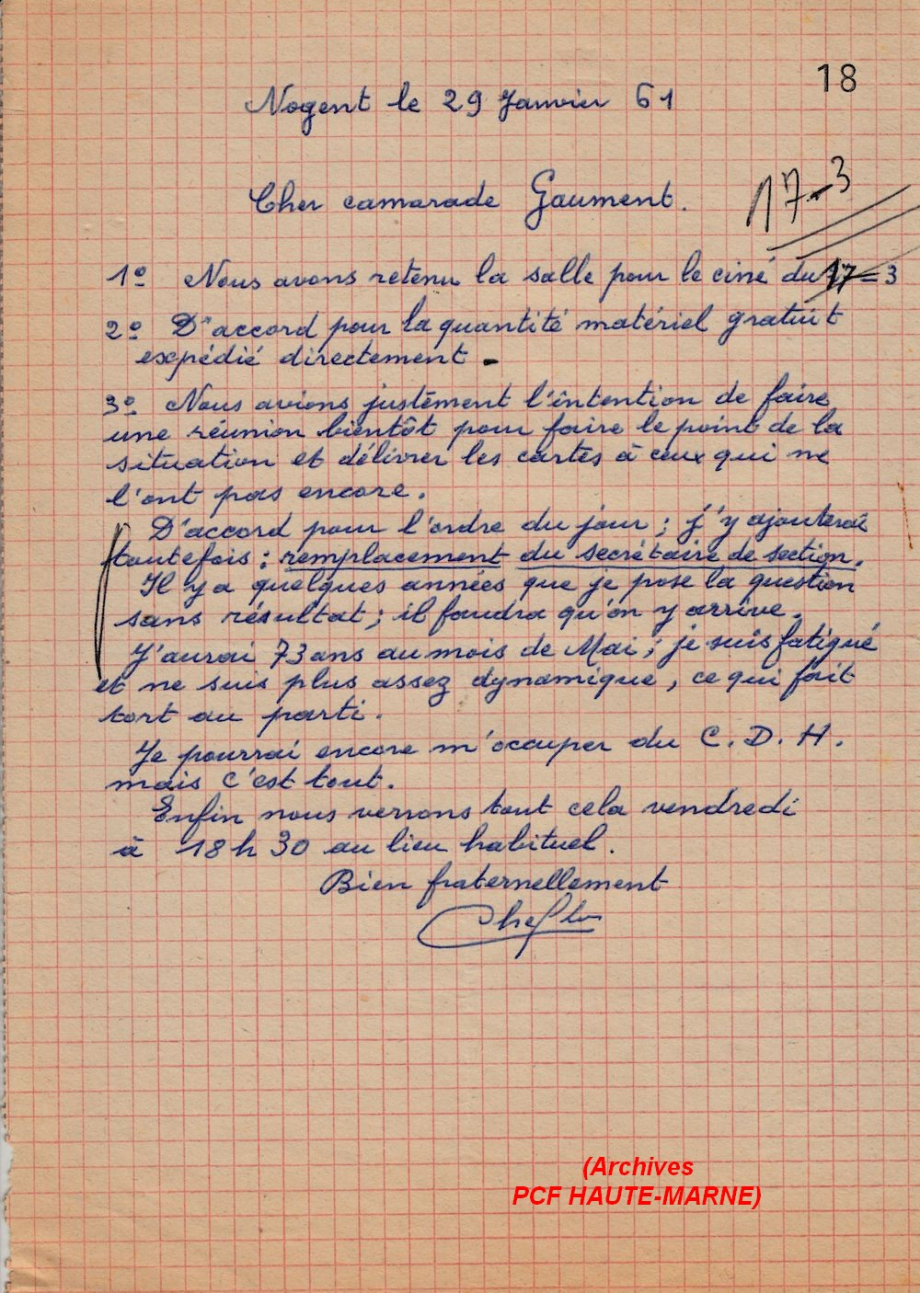 18
Nogent le 29 Janvier 61
Cher camarade Gaument.
17-3
1º Nous avons retenu la salle pour le ciné du 17=3
2º D'accord pour la quantité matériel gratuit
expédié directement -
3º Nous avions justement l'intention de faire
une réunion bientôt pour faire le point de la
situation et délivrer les cartes à ceux qui ne
l'ont pas encore.
D'accord pour l'ordre du jour ; j'y ajouterai
toutefois : remplacement du secrétaire de section.
Il y a quelques années que je pose la question
sans résultat ; il faudra qu'on y arrive.
J'aurai 73 ans au mois de Mai ; je suis fatigué
et ne suis plus assez dynamique, ce qui fait
tort au parti.
Je pourrai encore m'occuper du C.D.H.
mais c'est tout.
Enfin nous verrons tout cela vendredi
à 18h 30 au lieu habituel.
Bien fraternellement
(Archives
PCF HAUTE-MARNE)